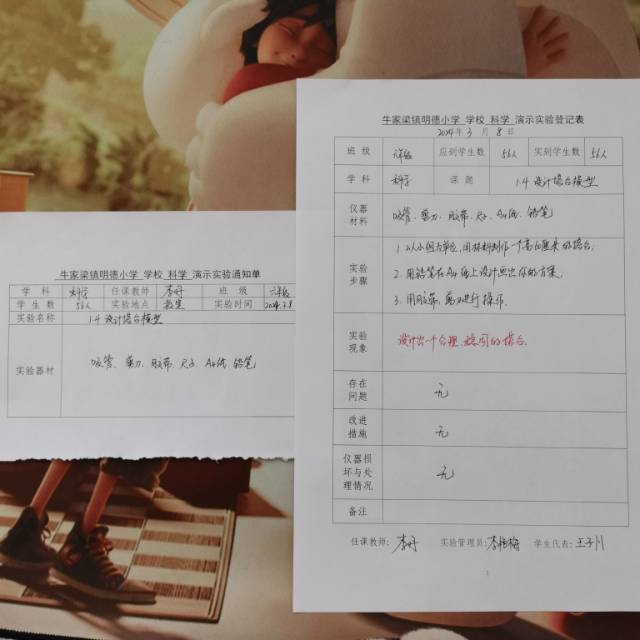 牛家梁镇明德小学 学校 科学 演示实验通知单
学 科 科学 任课教师 李丹 班 级 六年级
学 生 数 56人 实验地点 教室 实验时间 2024.3.8
实验名称 1.4 设计塔台模型
实验器材 吸管、剪刀、胶带、尺子、A4纸 铅笔
牛家梁镇明德小学 学校 科学 演示实验登记表
2024 年 3 月 8 日
班 级 六年级 应到学生数 56人 实到学生数 56人
学 科 科学 课 题 1.4 设计塔台模型
仪器材料 吸管、剪刀、胶带、尺子、A4纸、铅笔
实验步骤 1. 以小组为单位,用材料制作一个高 厘米的塔台.
2. 用铅笔在A4纸上设计画出你的方案.
3. 用胶带、剪刀进行操作.
实验现象 设计出一个合理、稳固的塔台.
存在问题 无
改进措施 无
仪器损坏与处理情况 无
备注
任课教师: 李丹 实验管理员: 李 梅 学生代表: 王子
1